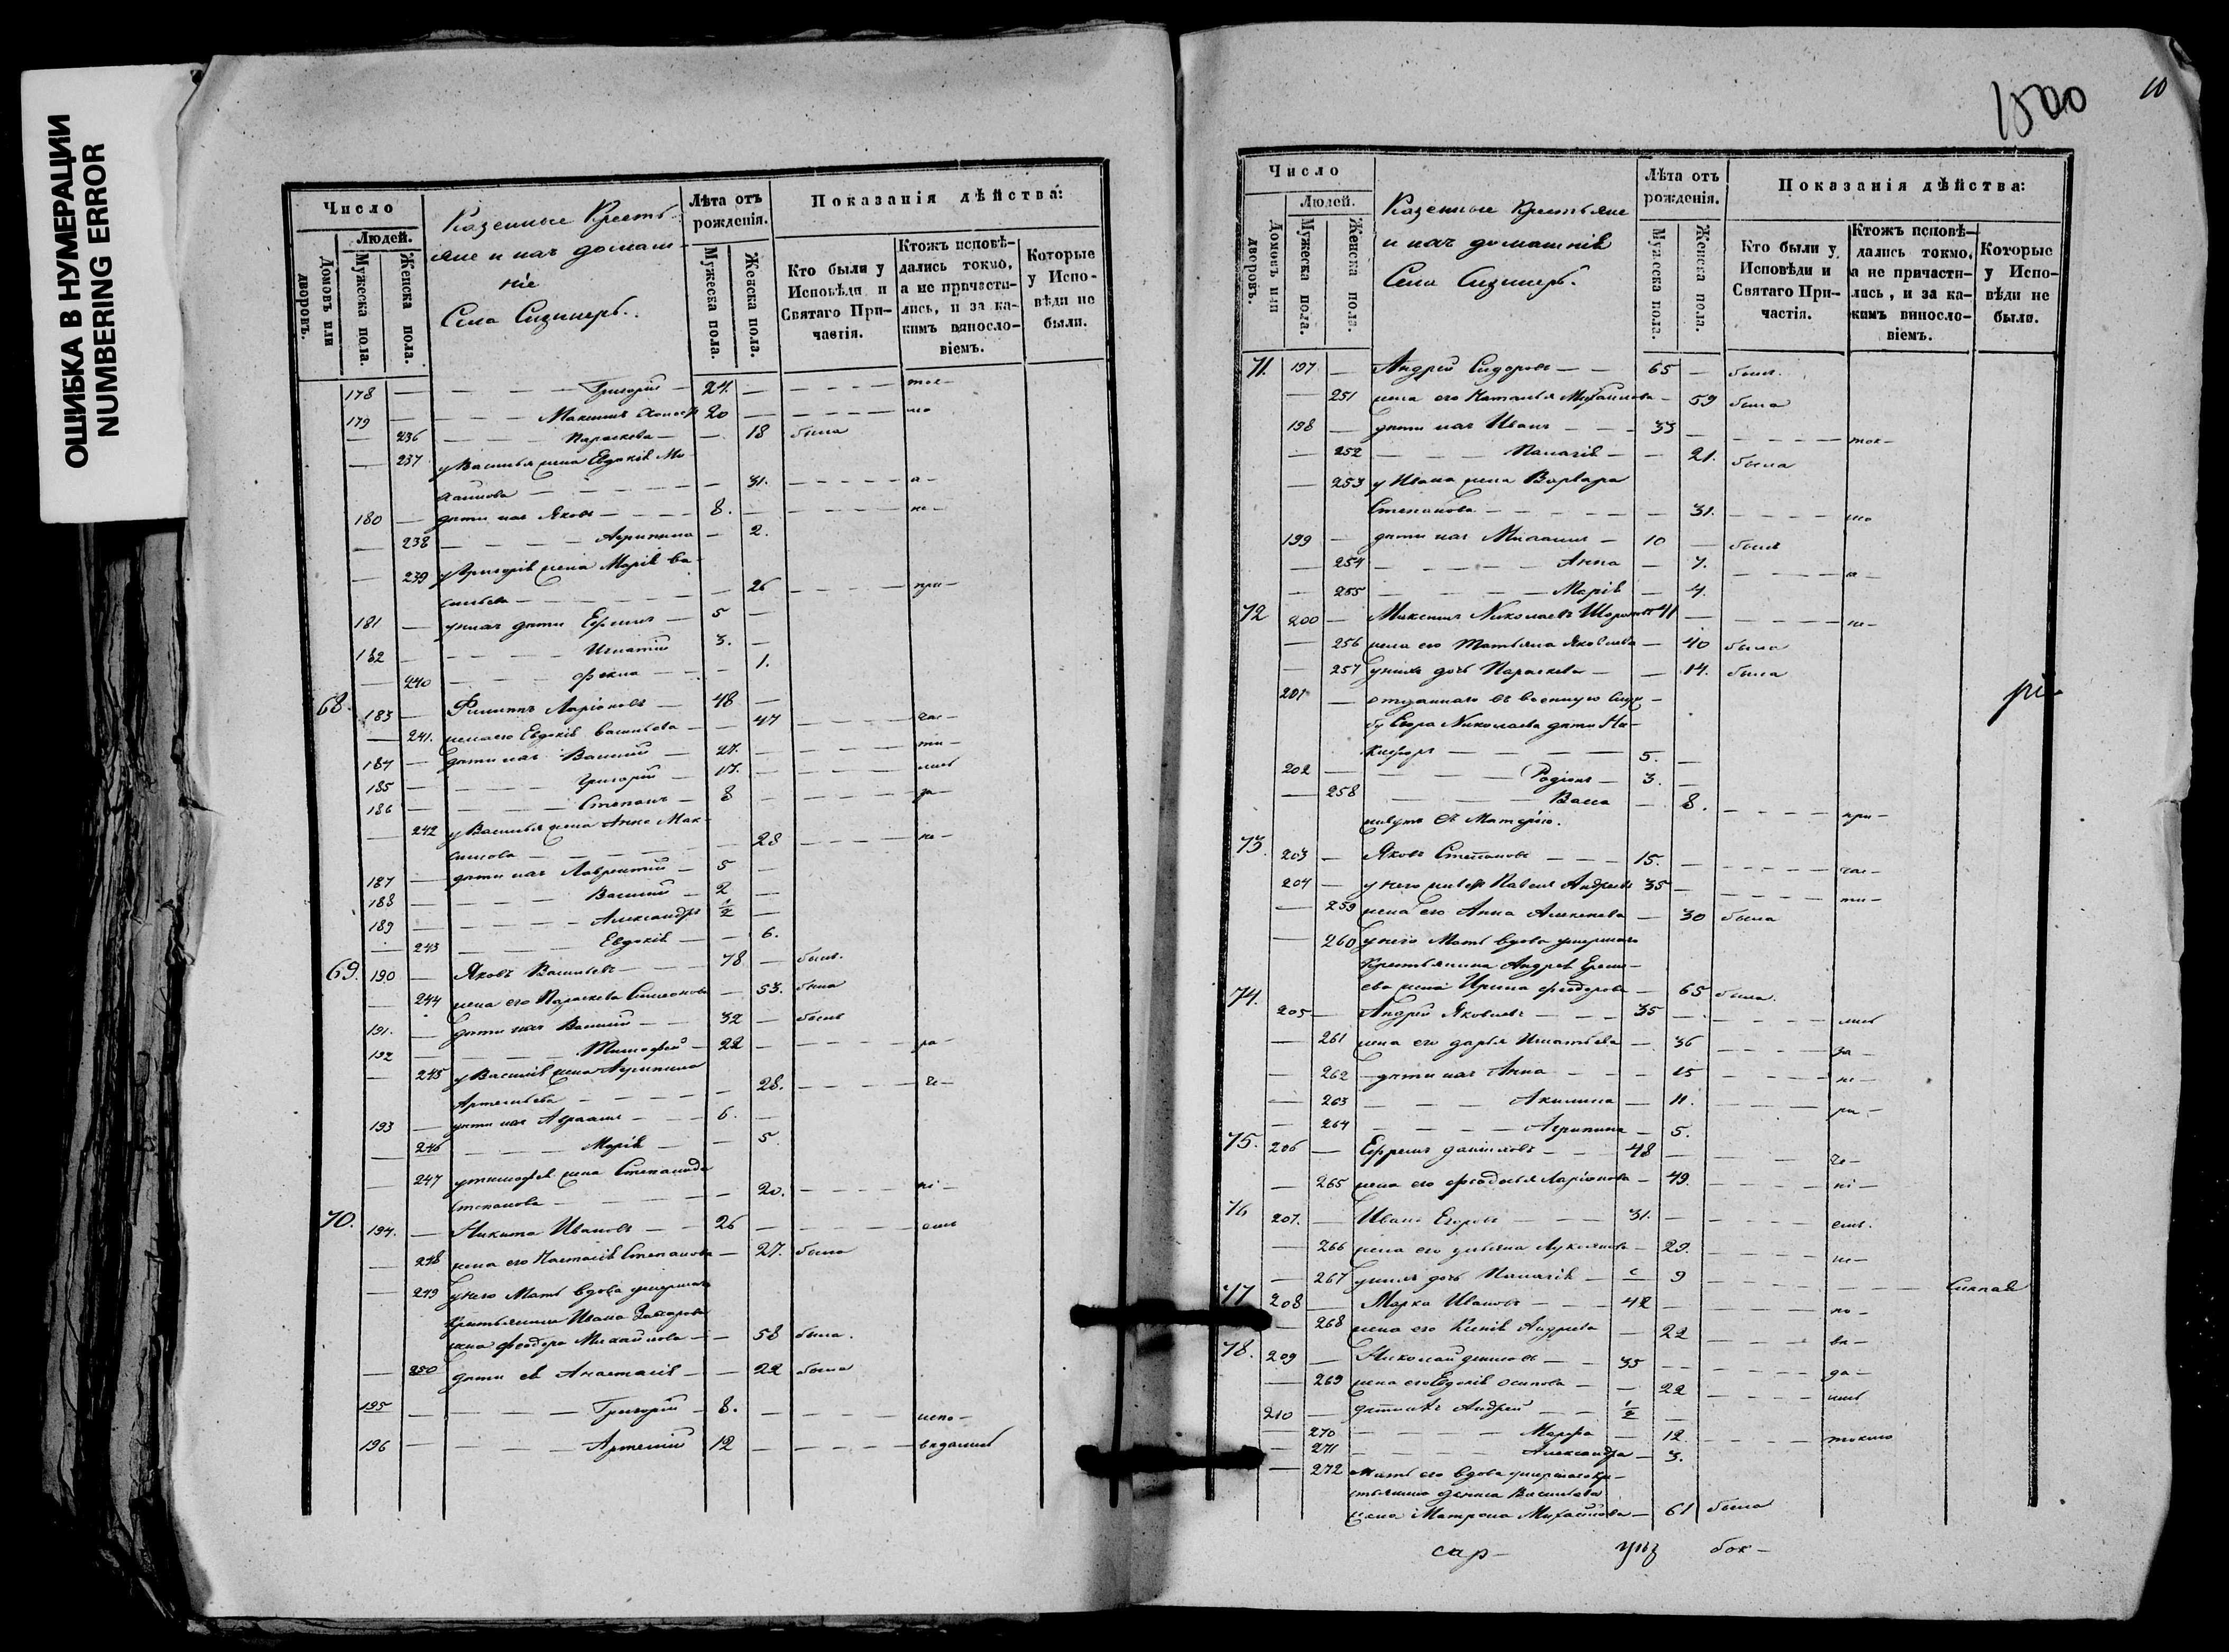 ОШИБКА В НУМЕРАЦИИ
NUMBERING ERROR
Число
Людей.
Домовъ или дворовъ.
Мужеска пола.
Женска пола.
Казенные Кресть-
яне и ихъ домаш-
ніе
Села
Лѣта отъ рожденія.
Мужеска пола.
Женска пола.
Показанія дѣйства:
Кто были у Исповѣди и Святаго Причастія.
Ктожъ исповѣдались токмо, а не причастились, и за какимъ винословіемъ.
Которые у Исповѣди не были.
178 — Григорій 24. —
179 — Максимъ 20 —
— 236 Параскева — 18 была
— 237 у Василья жена Евдокія Ми-
хайлова — 31.
180 — дѣти ихъ Яковъ 8. —
— 238 Агрипина — 2.
— 239 у Григорія жена Марія Ва-
сильева — 26 при-
181 — у нихъ дѣти Ефимъ 5 —
182 — Игнатій 3. —
— 240 Фекла — 1.
68. 183 — Филиппъ Ларіоновъ 48 —
— 241. жена его Евдокія Васильева — 47 час-
184 — дѣти ихъ Василій 27. — ти-
185 — Григорій 17. — лись
186 — Степанъ 8 — за-
— 242 у Василья жена Анна Мак-
симова — 28 не-
187 — дѣти ихъ Лаврентій 5 —
188 — Василій 2 —
189 — Александръ 1/2 —
— 243 Евдокія — 6.
69. 190 — Яковъ Васильевъ 78 — былъ.
— 244 жена его Параскева Симеонова — 53. была
191. — дѣти ихъ Василій 32 — былъ
192 — Тимофей 22 — ра-
— 245 у Василія жена Агрипина
Артемьева — 28. че-
193 — дѣти ихъ Авраамъ 6. —
— 246 Марія — 5
— 247 у Тимофея жена Степанида
Степанова — 20. ні-
70. 194. — Никита Ивановъ 26 — емъ
— 248 жена его Настасія Степанова — 27. была
— 249 у него Мать вдова умершаго
Крестьянина Ивана Захарова
жена Феодора Михайлова — 58 была.
— 250 дѣти ея Анастасія — 22 была
195 — Григорій 8. — испо-
196 — Артемій 12 — вѣдались
1500
10
Число
Людей.
Домовъ или дворовъ.
Мужеска пола.
Женска пола.
Казенные Крестьяне
и ихъ домашнія
Села
Лѣта отъ рожденія.
Мужеска пола.
Женска пола.
Показанія дѣйства:
Кто были у Исповѣди и Святаго Причастія.
Ктожъ исповѣдались токмо, а не причастились, и за какимъ винословіемъ.
Которые у Исповѣди не были.
71. 197 — Андрей Сидоровъ 65 — былъ.
— 251 жена его Наталья Михайлова — 59 была
198 — дѣти ихъ Иванъ 33 — ток-
— 252 Палагія — 21. была
— 253 у Ивана жена Варвара
Степанова — 31. мо
199 — дѣти ихъ 10 — былъ
— 254 Анна — 7. а-
— 255 Марія — 4.
72 200 — Максимъ Николаевъ 41 — не-
— 256 жена его Татьяна Яковлева — 40 была
— 257 у нихъ дочь Параскева — 14. была
201 — отданнаго въ военную служ-
бу Егора Николаева дѣти Ни-
кифоръ 5. —
202 — Родіонъ 3. —
— 258 Васса — 8. при-
живутъ съ Матерію.
73. 203 — Яковъ Степановъ 15. — час-
204 — у него живетъ Павелъ Андреевъ 35 — ти-
— 259 жена его Анна Алексеева — 30 была
— 260 у него Мать вдова умершаго
Крестьянина Андрея
жена Ирина Феодорова — 65 была.
74. 205 — Андрей Яковлевъ 35 — лись
— 261 жена его Дарья Игнатьева — 36 за-
— 262 дѣти ихъ Анна — 15 не-
— 263 Акилина — 11. ра-
— 264 Агрипина — 5.
75. 206 — Ефремъ Даниловъ 48 — че-
— 265 жена его Феодосья Ларіонова — 49. ні-
76 207. — Иванъ Егоровъ 31. — емъ.
— 266 жена его Ульяна Лукьянова — 29. не-
— 267 у нихъ дочь Палагія — 9
77 208 — Марка Ивановъ 42 — по-
— 268 жена его Ксенія Андреева — 22 вѣ-
78. 209 — Николай Денисовъ 35 — да-
— 269 жена его Евдокія Осипова — 22 лись
210 — Андрей 1/2 —
— 270 Марфа — 12. токмо
— 271 Александра — 3.
— 272 Мать его вдова умершаго Кре-
стьянина Дениса Васильева
жена Матрона Михайлова — 61 была